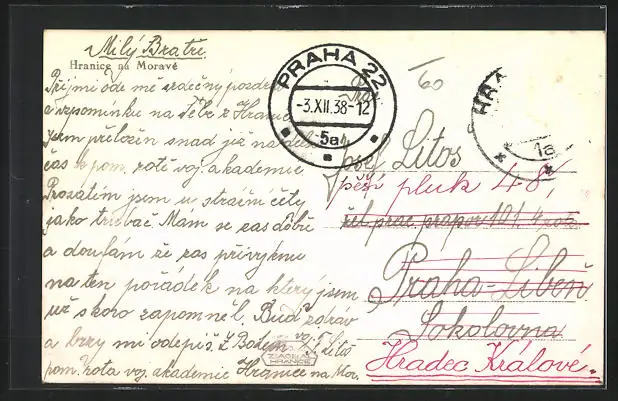 Milý Bratře
Hranice na Moravě
Přijmi ode mě srdečný pozdrav
a vzpomínku na Tebe z Hranic
jsem přeložen snad již na delší
čas k pom. rotě voj. akademie
Prozatím jsem u strážní čety
jako trubač. Mám se zas dobře
a doufám že zas přivyknu
na ten pořádek na který jsem
už skoro zapomněl. Buď zdráv
a brzy mi odepiš. Z Bohem voj. Litoš
pom. rota voj. akademie Hranice na Mor.
PRAHA 22
-3.XII.38-12
5a
60
HRA
1a
Josef Litoš
pěší pluk 48,
prac. prapor 101. 4 rota
Praha-Libeň
Sokolovna
Hradec Králové.
HRANICE